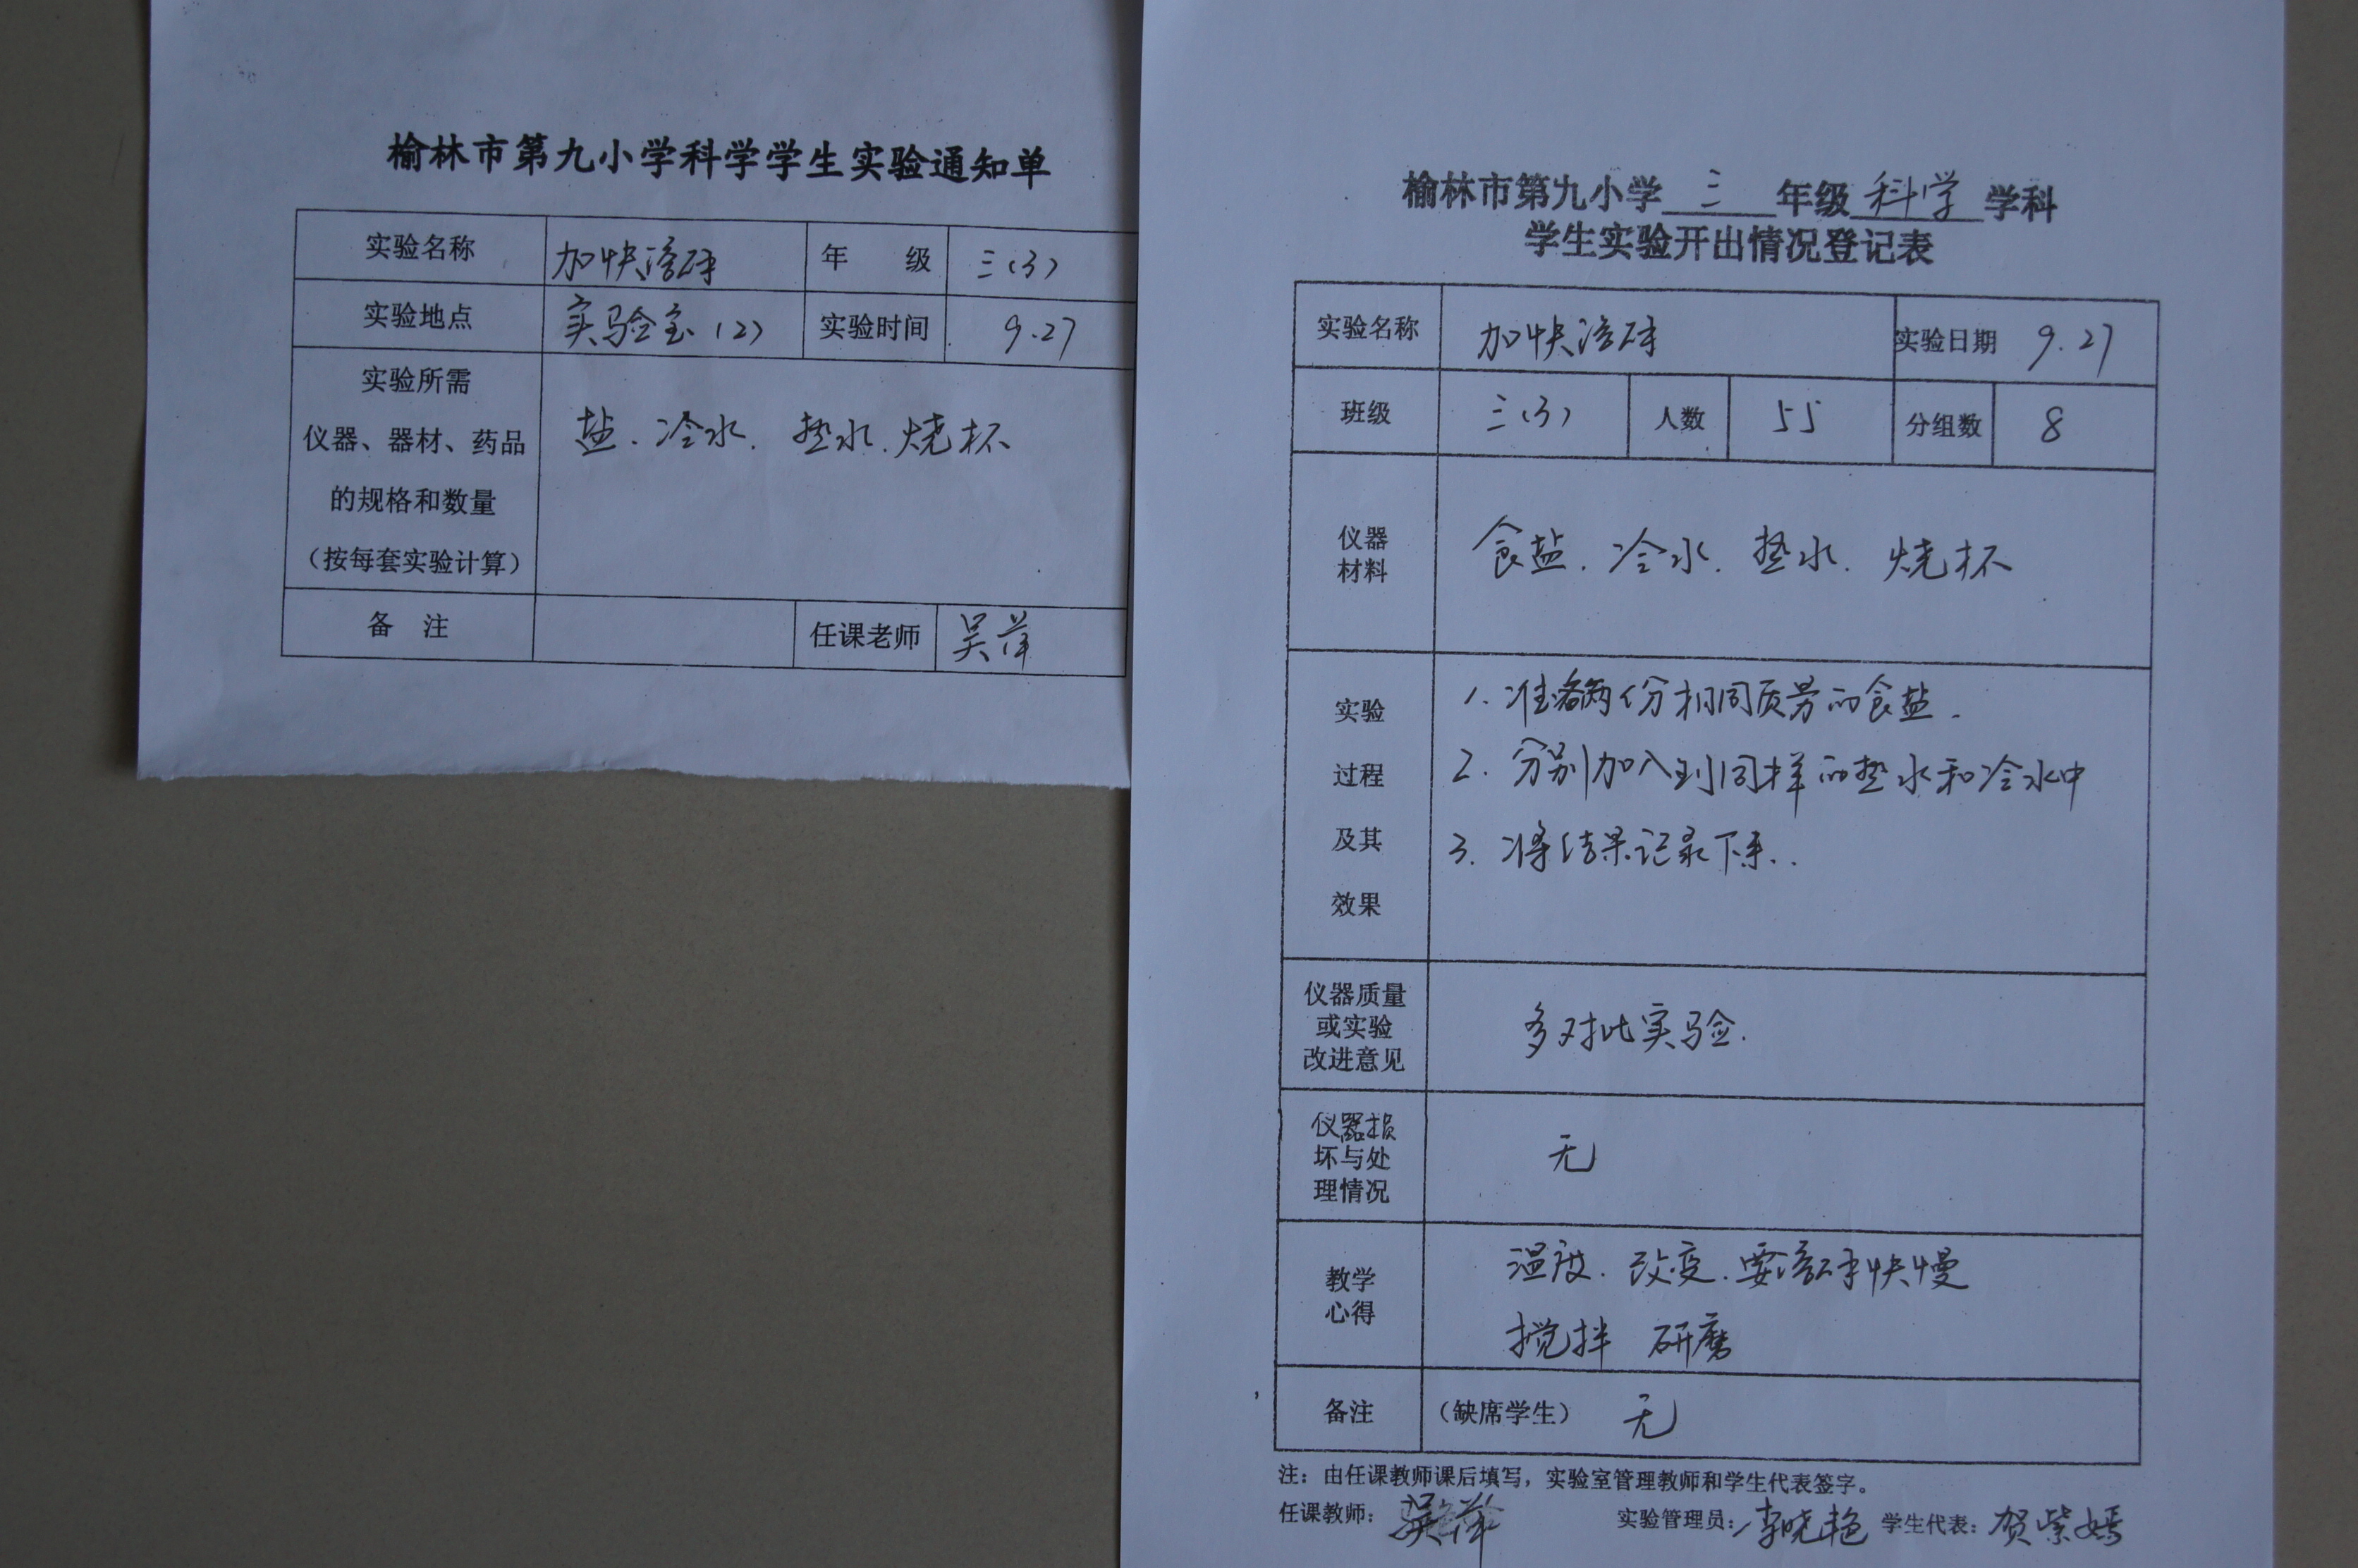 榆林市第九小学科学学生实验通知单
实验名称 加快溶解 年 级 三(3)
实验地点 实验室(2) 实验时间 9.27
实验所需
仪器、器材、药品
的规格和数量
(按每套实验计算)
盐.冷水.热水.烧杯
备 注 任课老师 吴萍
榆林市第九小学 三 年级 科学 学科
学生实验开出情况登记表
实验名称 加快溶解 实验日期 9.27
班级 三(3) 人数 55 分组数 8
仪器
材料
食盐.冷水.热水.烧杯
实验
过程
及其
效果
1.准备两份相同质量的食盐.
2.分别加入到同样的热水和冷水中
3.将结果记录下来..
仪器质量
或实验
改进意见
多对比实验.
仪器损
坏与处
理情况
无
教学
心得
温度.改变.要溶解快慢
搅拌 研磨
备注 (缺席学生) 无
注:由任课教师课后填写,实验室管理教师和学生代表签字。
任课教师:吴萍 实验管理员:李晓艳 学生代表:贺紫嫣